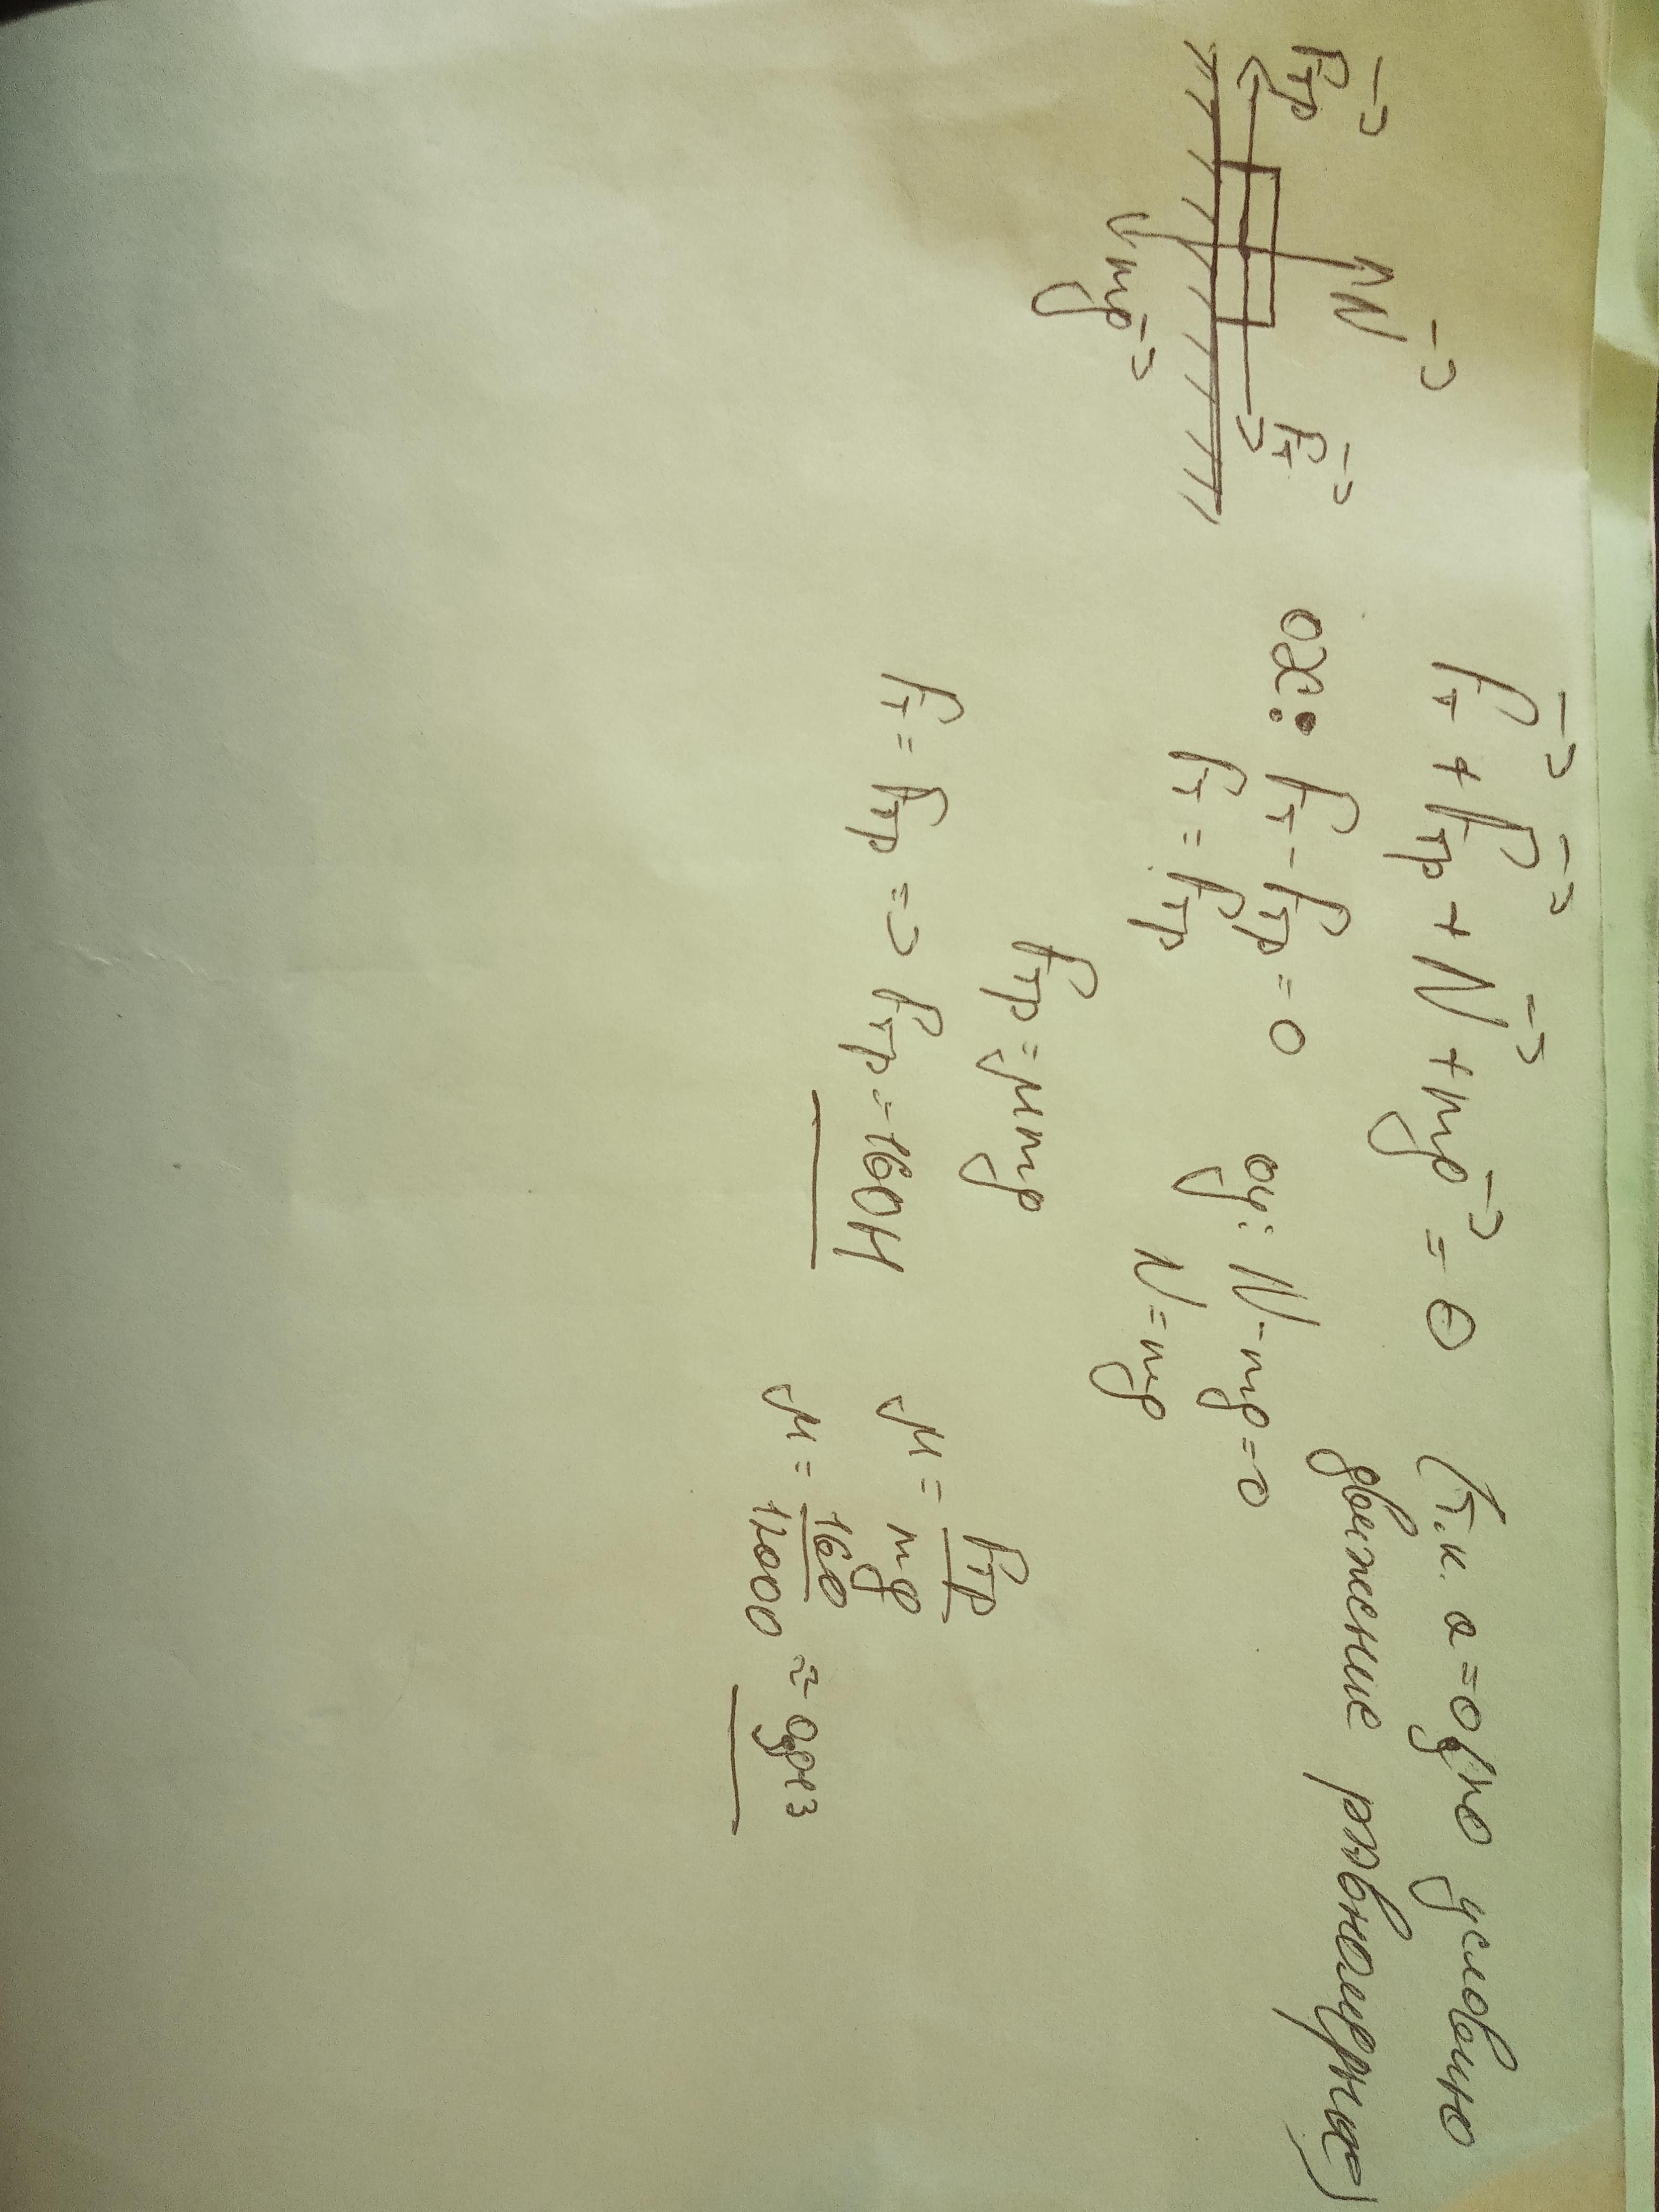 F⃗т + F⃗тр + N⃗ + mg⃗ = 0 (т.к. a=0, по условию
движение равномерное)
F⃗тр N⃗ F⃗т
mg⃗
ox: Fт - Fтр = 0 oy: N-mg=0
Fт = Fтр N=mg
Fтр = μmg
Fт = Fтр => Fтр = 160Н μ = Fтр/mg
μ = 160/12000 ≈ 0,013